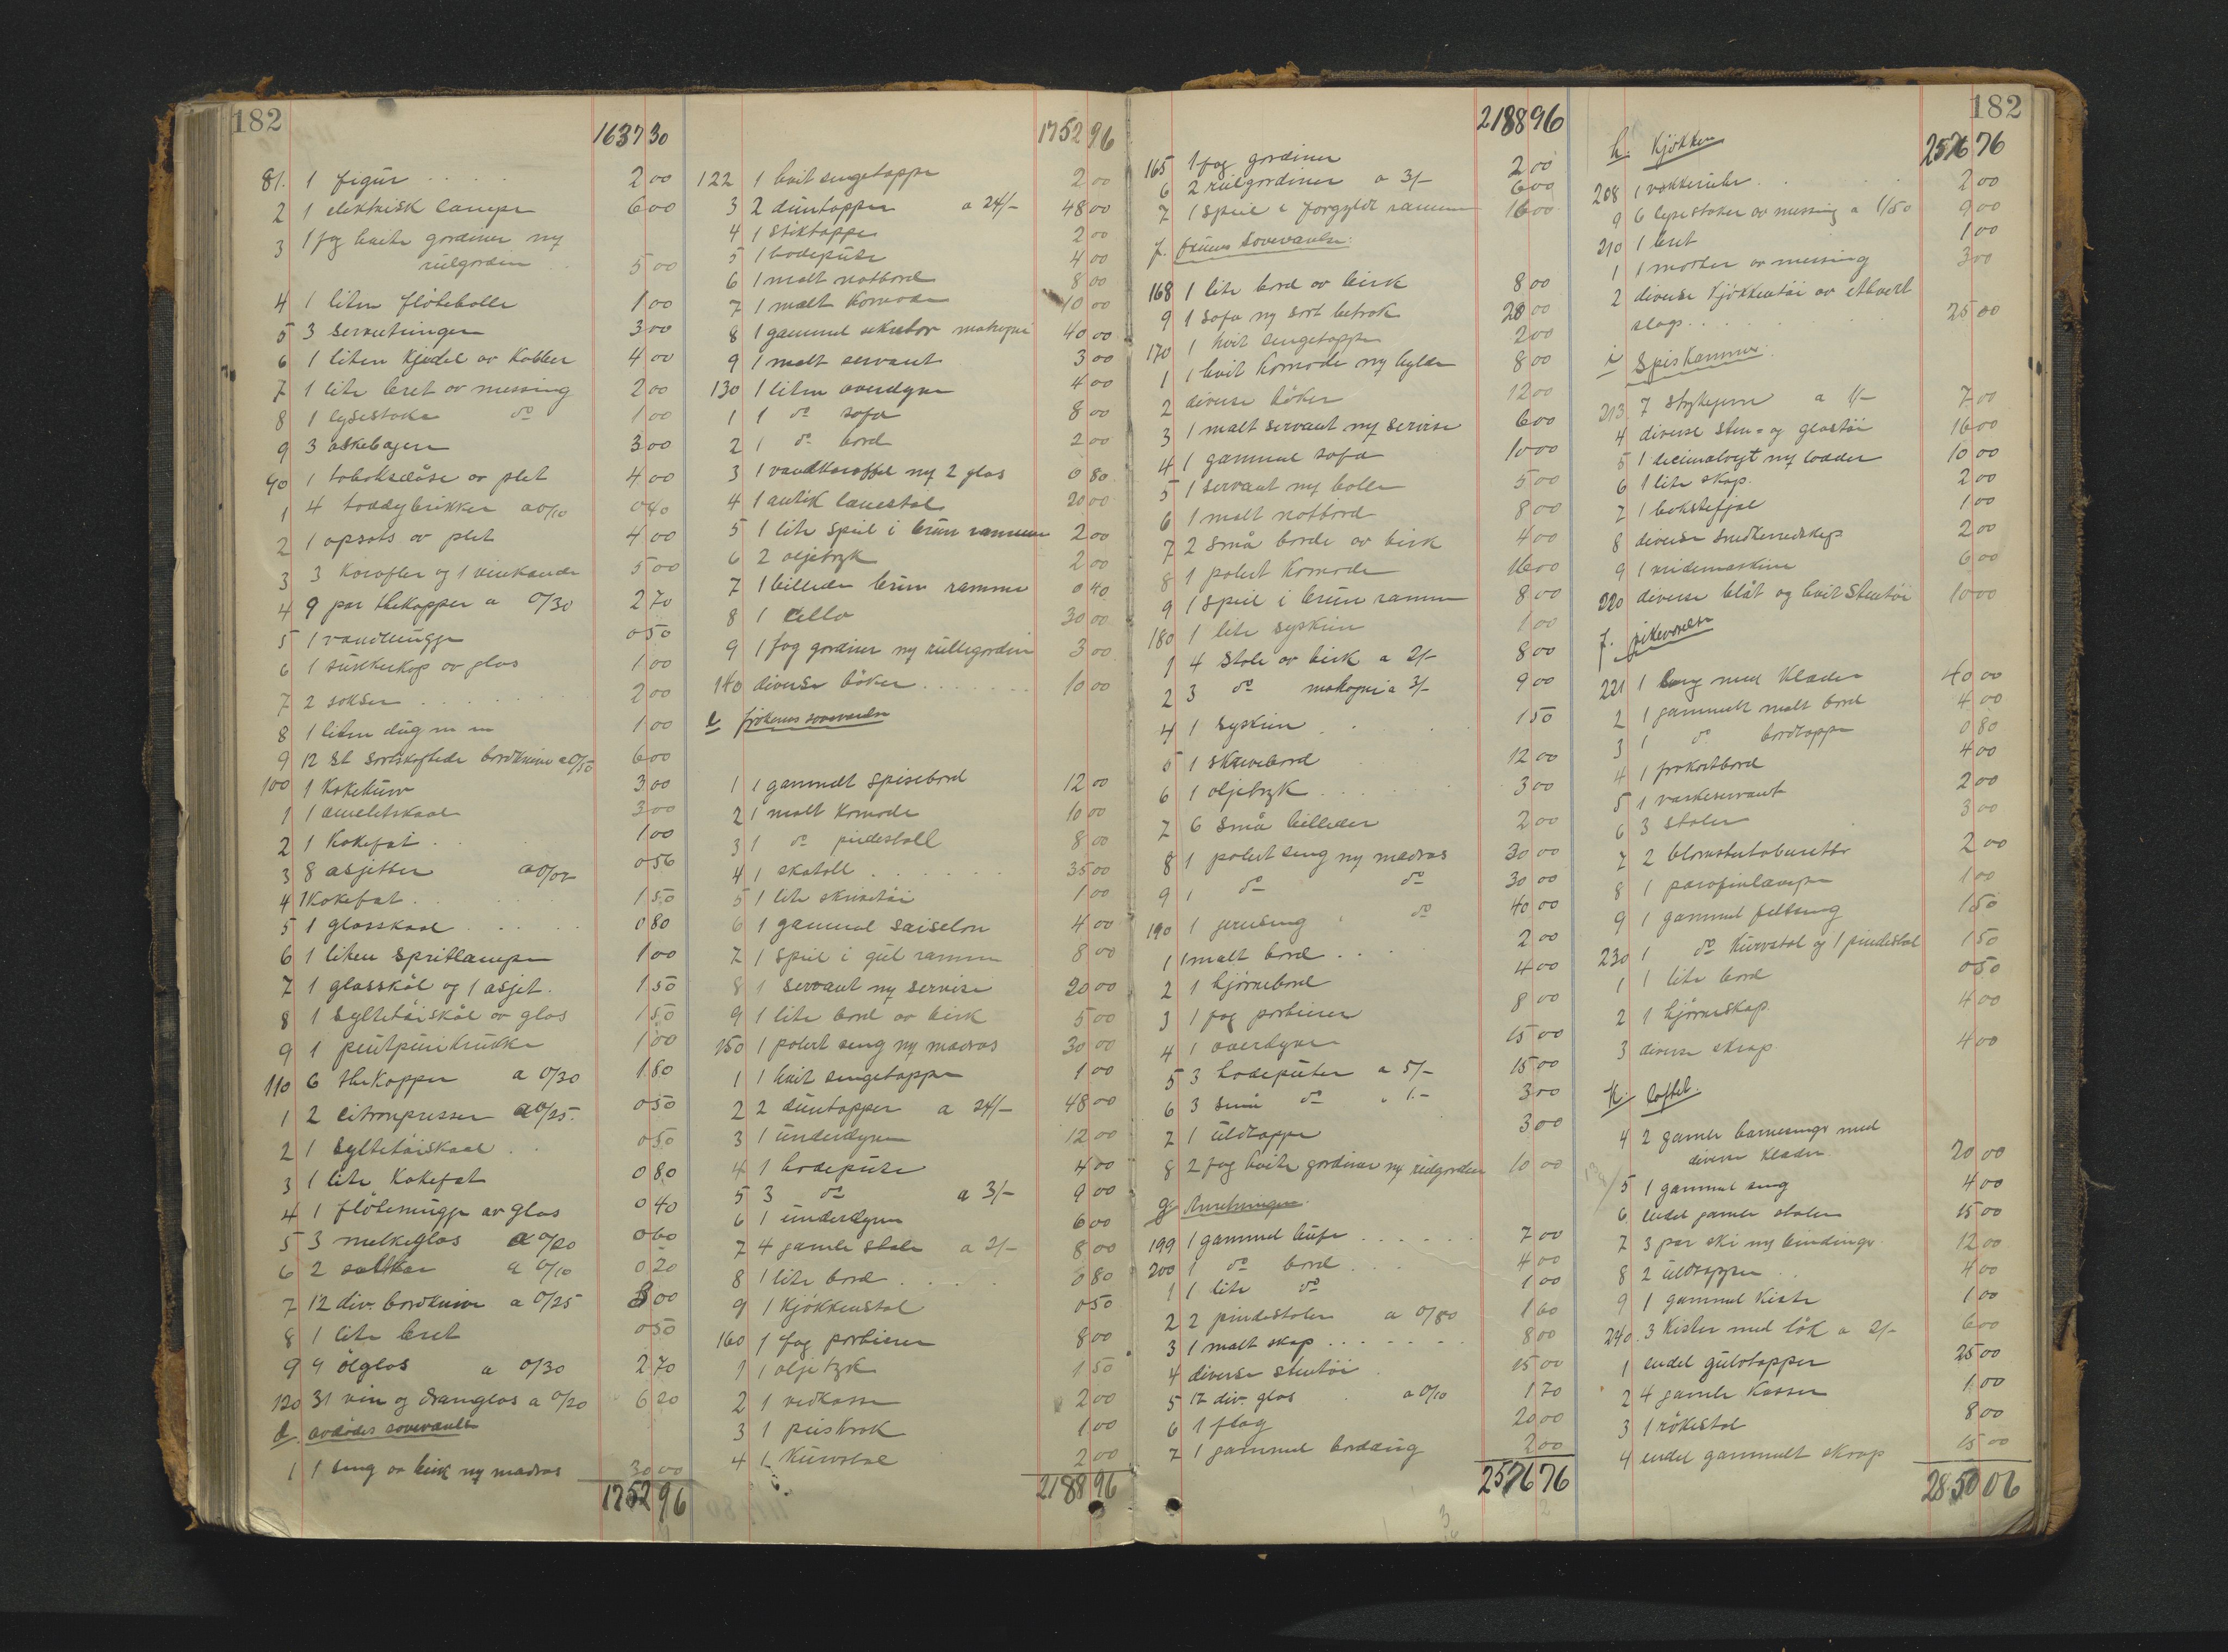 182
1637 30
81. 1 figur . . . . 2 00
2 1 elektrisk lampe 6 00
3 1 fag hvite gardiner m/
rulgardin . . 5 00
4 1 liten flötebolle 1 00
5 3 servietringer 3 00
6 1 liten kjedel av kobber 4 00
7 1 lite bret av messing 2 00
8 1 lysestake do 1 00
9 3 askebægere 3 00
90 1 tobaksdåse av plet 4 00
1 4 toddybrikker a 0/10 0 40
2 1 opsats av plet 4 00
3 3 karafler og 1 vinkande 5 00
4 9 par thekopper a 0/30 2 70
5 1 vandmugge 0 50
6 1 sukkerkop av glas 1 00
7 2 sakser . . . . 2 00
8 1 liten dug m m 1 00
9 12 st sortskaftede bordkniver a 0/50 6 00
100 1 kokekum 3 00
1 1 ameletskaal 3 00
2 1 kakefat . . 1 00
3 8 asjetter a 0/07 0 56
4 1 kakefat . . 1 50
5 1 glasskaal . . . . 0 80
6 1 liten spritlampe 1 00
7 1 glasskål og 1 asjet. 1 50
8 1 syltetøiskål av glas 1 50
9 1 krukke 1 00
110 6 thekopper a 0/30 1 80
1 2 citronpresser a 0/25. 0 50
2 1 syltetøiskaal . . 0 50
3 1 lite kakefat 0 80
4 1 flötemugge av glas 0 40
5 3 melkeglas a 0/20 0 60
6 2 saltkar a 0/10 0 20
7 12 div. bordkniver a 0/25 3 00
8 1 lite bret 0 50
9 9 ölglas a 0/30 2 70
120 31 vin og dramglas a 0/20 6 20
d. avdödes soveværelse
1 1 seng av birk m/ madras 30 00
1752 96
1752 96
122 1 hvit sengetæppe 2 00
3 2 duntæpper a 24/- 48 00
4 1 stiktæppe 2 00
5 1 hodepute 4 00
6 1 malt natbord 8 00
7 1 malt komode 10 00
8 1 gammel sekretær mahogni 40 00
9 1 malt servant 3 00
130 1 liten overdyne 4 00
1 1 do sofa 8 00
2 1 do bord 2 00
3 1 vandkaraffel m/ 2 glas 0 80
4 1 antik lænestol 20 00
5 1 lite speil i brun ramme 2 00
6 2 oljetryk 2 00
7 1 billede brun ramme 0 40
8 1 cello 30 00
9 1 fag gardiner m/ rullegardin 3 00
140 diverse böker . . . . . . . 10 00
e frökenes soveværelse
1 1 gammelt spisebord 12 00
2 1 malt komode 10 00
3 1 do pidestall 8 00
4 1 skatoll . . . . . . 35 00
5 1 lite skrivetøi 1 00
6 1 gammel saiselon 4 00
7 1 speil i gul ramme 8 00
8 1 servant m/ servise 20 00
9 1 lite bord av birk 5 00
150 1 polert seng m/ madras 30 00
1 1 hvit sengetæppe 1 00
2 2 duntæpper a 24/- 48 00
3 1 underdyne 12 00
4 1 hodepute 4 00
5 3 do a 3/- 9 00
6 1 underdyne 6 00
7 4 gamle stole a 2/- 8 00
8 1 lite bord . . . . 0 80
9 1 kjökkenstol 0 50
160 1 fag portierer 8 00
1 1 oljetryk 1 50
2 1 vedkasse 2 00
3 1 peiskrok 1 00
4 1 kurvstol 2 00
2188 96
2188 96
165 1 fag gardiner 2 00
6 2 rulgardiner a 3/- 6 00
7 1 speil i forgyldt ramme 16 00
f. fruens soveværelse:
168 1 lite bord av birk 8 00
9 1 sofa m/ sort betræk 20 00
170 1 hvit sengetæppe 2 00
1 1 hvit komode m/ hylde 8 00
2 diverse böker 12 00
3 1 malt servant m/ servise 6 00
4 1 gammel sofa 10 00
5 1 servant m/ bolle 5 00
6 1 malt natbord 8 00
7 2 små borde av birk 4 00
8 1 polert komode 16 00
9 1 speil i brun ramme 8 00
180 1 lite syskrin 1 00
1 4 stole av birk a 2/- 8 00
2 3 do mahogni a 3/- 9 00
4 1 syskrin . . . 1 50
5 1 skrivebord 12 00
6 1 oljetryk . . . . . . 3 00
7 6 små billeder 2 00
8 1 polert seng m/ madras 30 00
9 1 do do 30 00
190 1 jernseng do 40 00
1 1 malt bord . . . 2 00
2 1 hjörnebord 4 00
3 1 fag portierer 8 00
4 1 overdyne 15 00
5 3 hodeputer a 5/- 15 00
6 3 små do " 1.- 3 00
7 1 uldtæppe 3 00
8 2 fag hvite gardiner m/ rulgardin 10 00
g. Anretningen
199 1 gammel bufe . . . . . . 7 00
200 1 do bord . . . 4 00
1 1 lite do 1 00
2 2 pindestoler a 0/80 1 60
3 1 malt skap . . . . . . . 8 00
4 diverse stentøi . 15 00
5 17 div. glas a 0/10 1 70
6 1 flag 20 00
7 1 gammel borddug 2 00
2576 76
182
2576 76
h. Kjökken
208 1 vækkeruhr . . . 2 00
9 6 lysestaker av messing a 1/50 9 00
210 1 bret 1 00
1 1 morter av messing 3 00
2 diverse kjökkentøi av ethvert
slags. . . . . . 25 00
i Spiskammer:
213 7 strykejern a 1/- 7 00
4 diverse sten- og glastøi 16 00
5 1 decimalvegt m/ lodder 10 00
6 1 lite skap. 2 00
7 1 bakstefjæl 1 00
8 diverse snedkerredskap 2 00
9 1 vridemaskine 6 00
220 diverse blåt og hvit stentøi 10 00
j. pikeværelse
221 1 seng med klæder 40 00
2 1 gammelt malt bord 4 00
3 1 do bordtæppe 0 80
4 1 frokostbord 4 00
5 1 vaskeservant 2 00
6 3 stoler 3 00
7 2 blomstertaburetter 2 00
8 1 parafinlampe 1 00
9 1 gammel feltseng 1 50
230 1 do kurvstol og 1 pindestol 1 50
1 1 lite bord 0 50
2 1 hjörneskap. 4 00
3 diverse skrap 4 00
k. loftet.
4 2 gamle barnesenge med
diverse klæder 20 00
5 1 gammel seng 4 00
6 endel gamle stoler 15 00
7 3 par ski m/ bindinger 12 00
8 2 uldtæpper . . 4 00
9 1 gammel kiste 1 00
240. 3 kister med lök a 2/- 6 00
1 endel gulvtæpper 25 00
2 4 gamle kasser 1 00
3 1 rökestol 8 00
4 endel gammelt skrap 15 00
2850 06